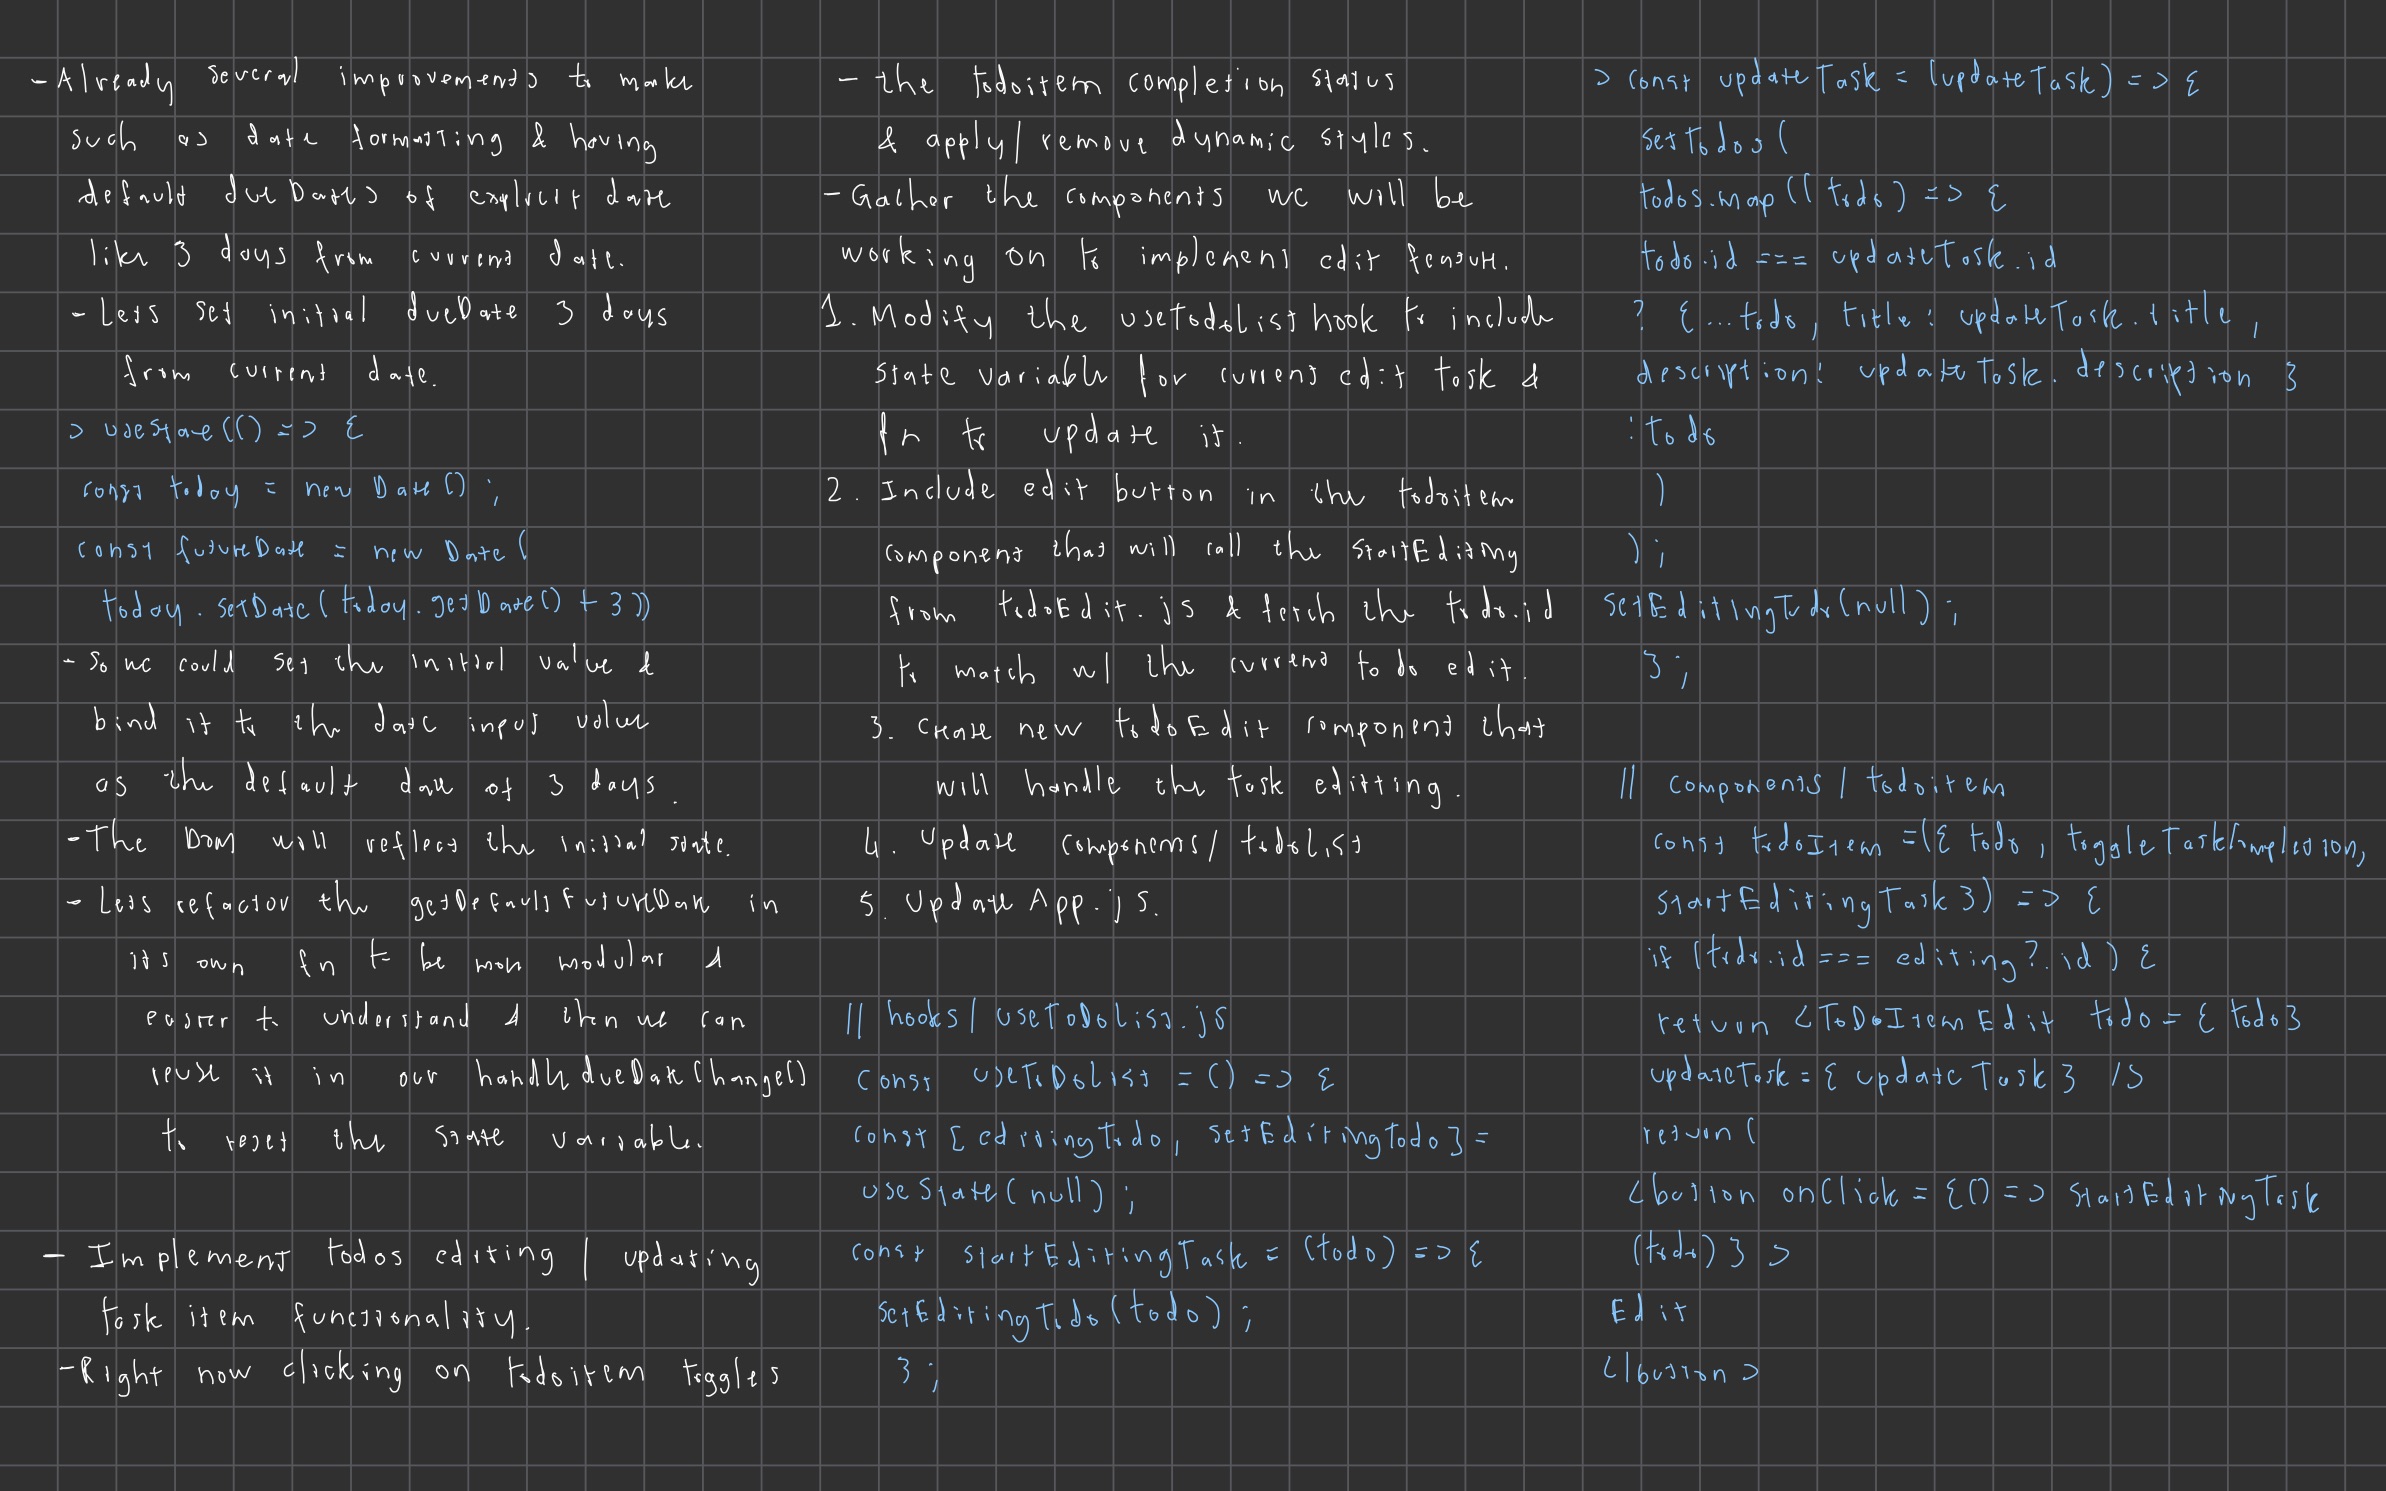 - Already several improvements to make
such as date formatting & having
default dueDates of explicit date
like 3 days from current date.
- Lets set initial dueDate 3 days
from current date.
> useState(() => {
const today = new Date() ;
const futureDate = new Date(
today.setDate(today.getDate() + 3))
- So we could set the initial value &
bind it to the date input value
as the default date of 3 days.
- The DOM will reflect the initial state.
- Lets refactor the getDefaultFutureDate in
its own fn to be more modular &
easier to understand & then we can
reuse it in our handle dueDateChange()
to reset the state variable.
- Implement todos editing / updating
task item functionality.
- Right now clicking on todoitem toggles
- the todoitem completion status
& apply/remove dynamic styles.
- Gather the components we will be
working on to implement edit feature.
1. Modify the useTodoList hook to include
state variable for current edit task &
fn to update it.
2. Include edit button in the todoitem
component that will call the startEditing
from todoEdit.js & fetch the todo.id
to match w/ the current to do edit.
3. Create new todoEdit component that
will handle the task editting.
4. Update components/todoList
5. Update App.js.
// hooks/useToDoList.js
const useToDoList = () => {
const [editingTodo, setEditingTodo] =
useState(null) ;
const startEditingTask = (todo) => {
setEditingTodo(todo) ;
} ;
> const updateTask = (updateTask) => {
setTodos(
todos.map((todo) => {
todo.id === updateTask.id
? {...todo, title: updateTask.title,
description: updateTask.description }
: todo
)
) ;
setEditingTodo(null) ;
} ;
// components/todoitem
const todoItem = ({ todo, toggleTaskCompletion,
startEditingTask }) => {
if (todo.id === editing?.id) {
return <ToDoItemEdit todo = { todo }
updateTask = { updateTask } />
return (
<button onClick = {() => startEditingTask
(todo) } >
Edit
</button>